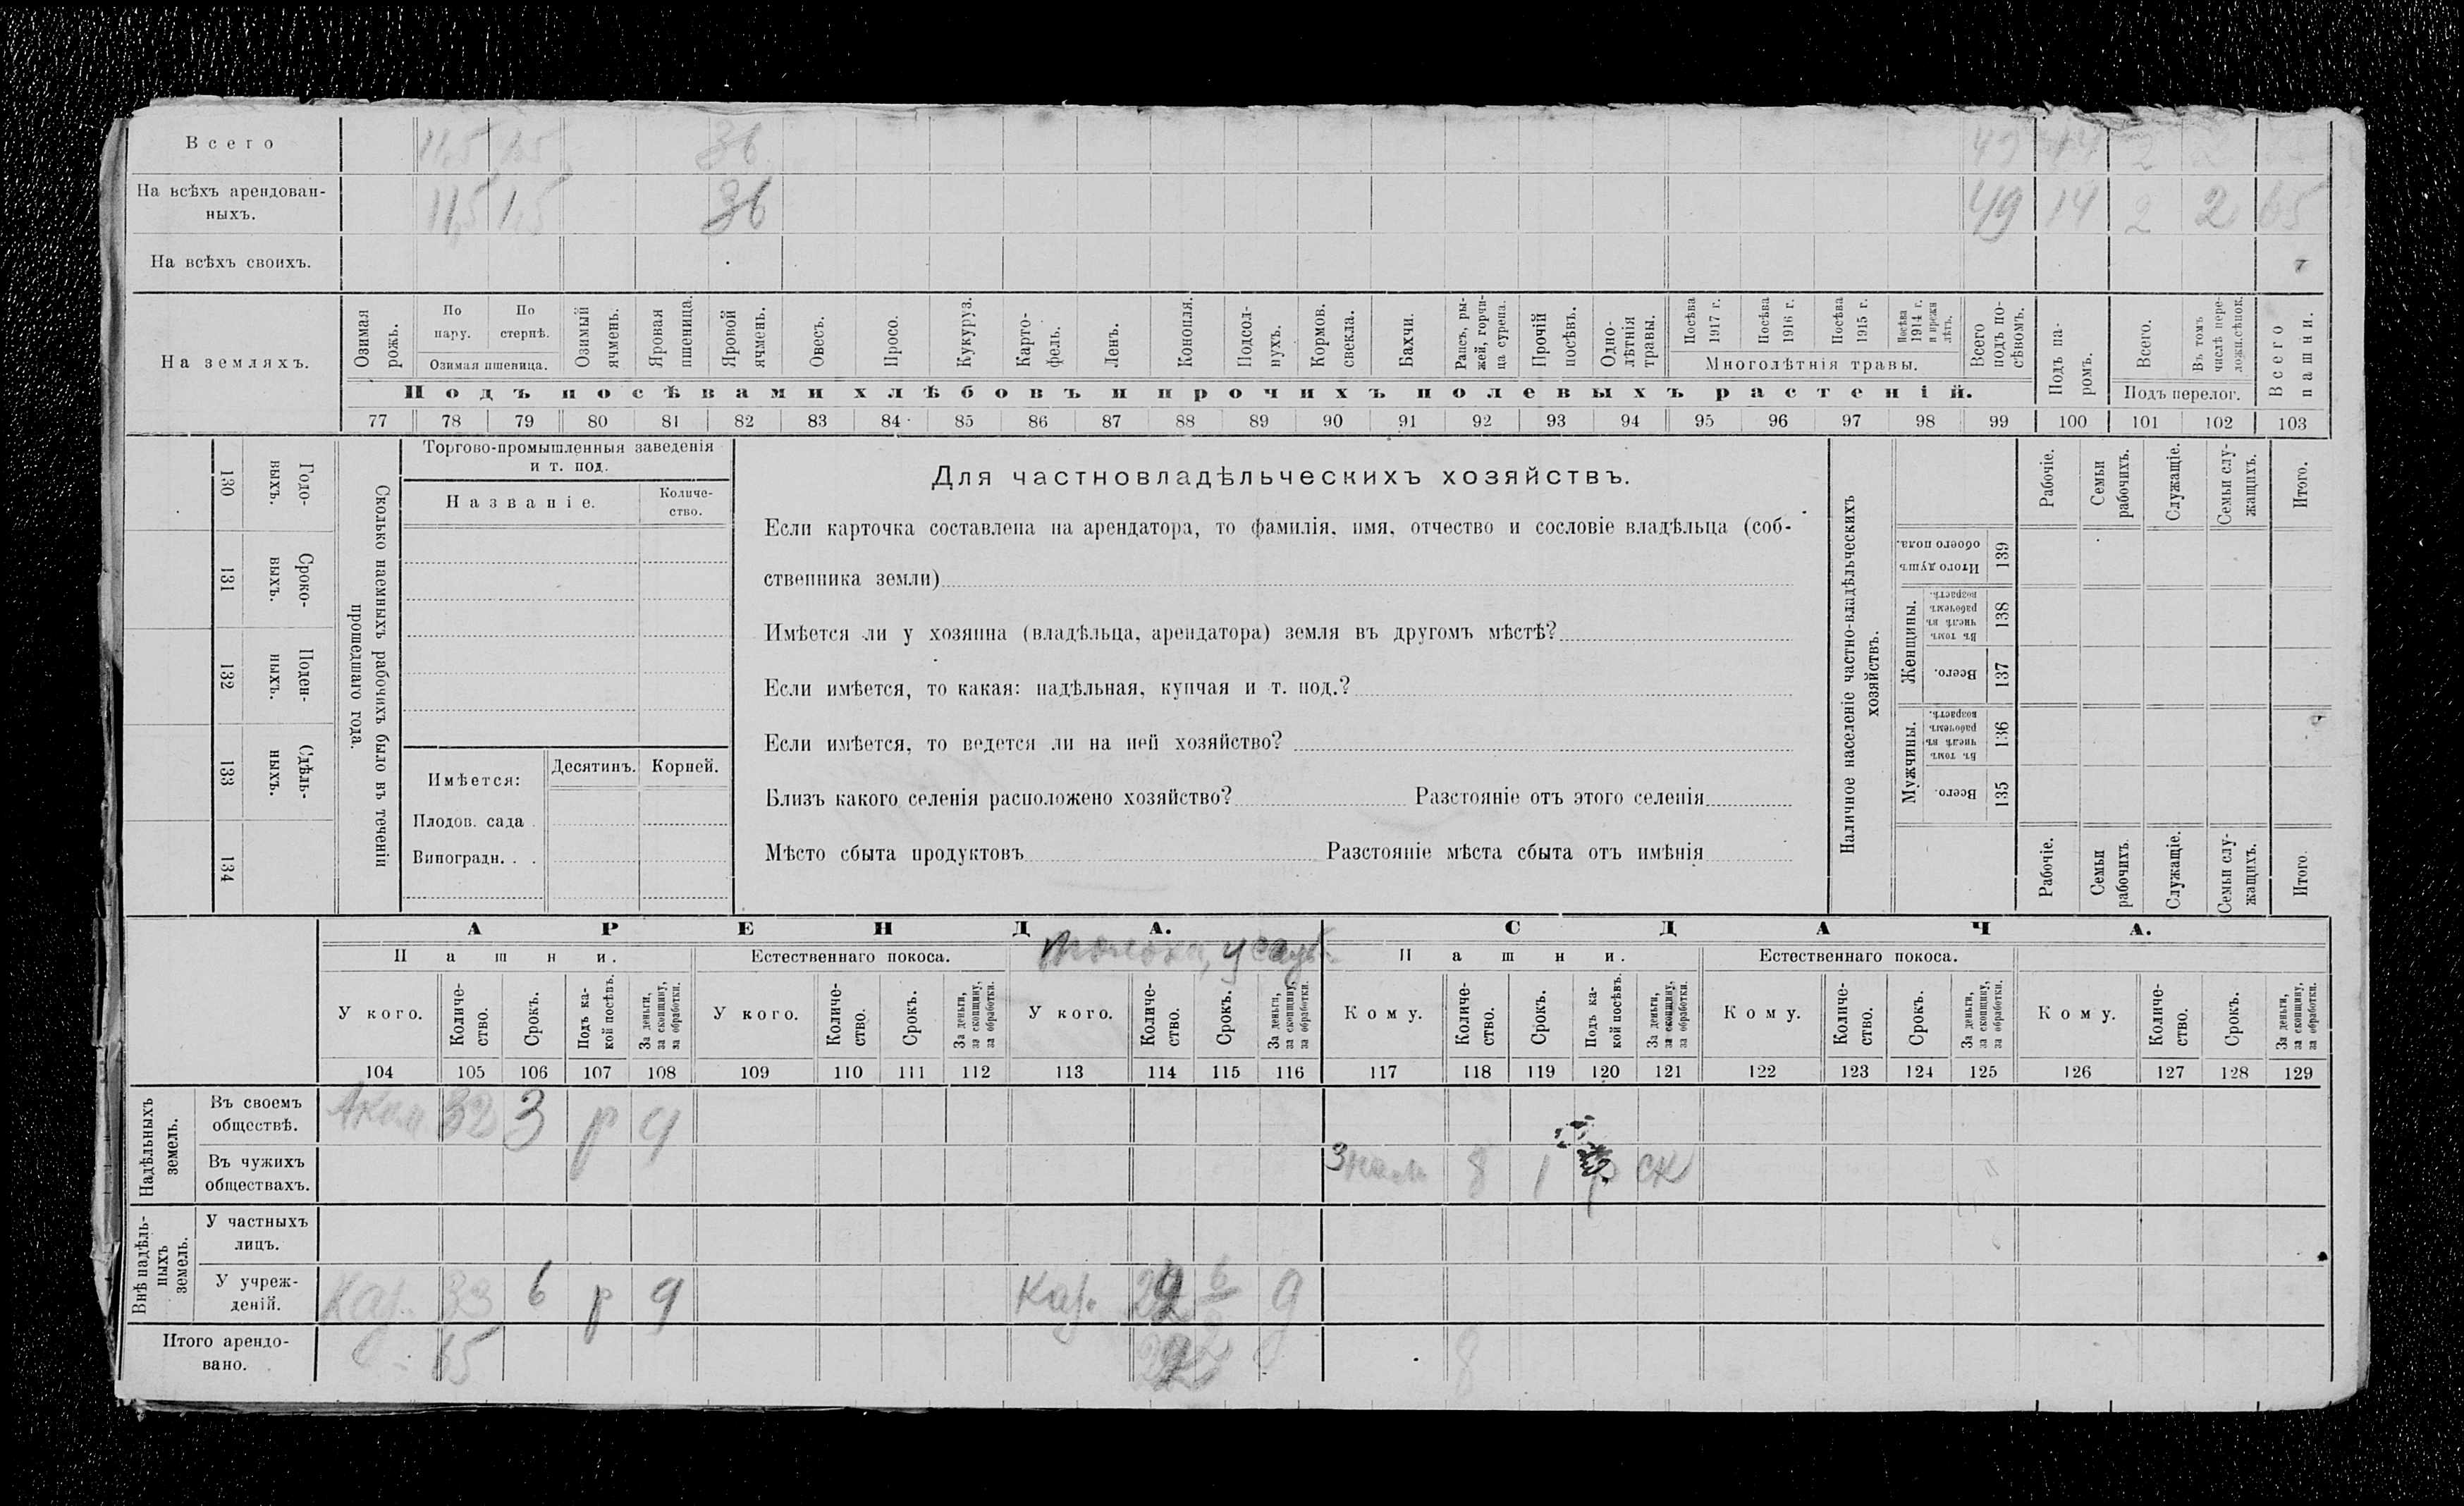 Всего 11,5 1,5 36 49 14 2 2
На всѣхъ арендован-
ныхъ. 11,5 1,5 36 49 14 2 2 65
На всѣхъ своихъ.
На земляхъ.
Озимая рожь.
По пару.
По стернѣ.
Озимая пшеница.
Озимый ячмень.
Яровая пшеница.
Яровой ячмень.
Овесъ.
Просо.
Кукуруз.
Карто-
фель.
Ленъ.
Конопля.
Подсол-
нухъ.
Кормов. свекла.
Бахчи.
Рапсъ, ры-
жей, горчи-
ца сурепа.
Прочій посѣвъ.
Одно-
лѣтнія травы.
Посѣва 1917 г.
Посѣва 1916 г.
Посѣва 1915 г.
Посѣва 1914 г. и прежн лѣтъ.
Многолѣтнія травы.
Всего подъ по-
сѣвомъ.
Подъ посѣвами хлѣбовъ и прочихъ полевыхъ растеній.
Подъ па-
ромъ.
Всего.
Въ томъ числѣ пере-
ложн. сѣнок.
Подъ перелог.
Всего пашни.
77 78 79 80 81 82 83 84 85 86 87 88 89 90 91 92 93 94 95 96 97 98 99 100 101 102 103
130 Годо-
выхъ.
131 Сроко-
выхъ.
132 Поден-
ныхъ.
133 Сдѣль-
ныхъ.
134
Сколько наемныхъ рабочихъ было въ теченіи
прошедшаго года.
Торгово-промышленныя заведенія
и т. под.
Названіе.
Количе-
ство.
Имѣется:
Десятинъ.
Корней.
Плодов. сада .
Виноградн. . .
Для частновладѣльческихъ хозяйствъ.
Если карточка составлена на арендатора, то фамилія, имя, отчество и сословіе владѣльца (соб-
ственника земли)
Имѣется ли у хозяина (владѣльца, арендатора) земля въ другомъ мѣстѣ?
Если имѣется, то какая: надѣльная, купчая и т. под.?
Если имѣется, то ведется ли на ней хозяйство?
Близъ какого селенія расположено хозяйство? Разстояніе отъ этого селенія
Мѣсто сбыта продуктовъ Разстояніе мѣста сбыта отъ имѣнія
Наличное населеніе частно-владѣльческихъ
хозяйствъ.
Рабочіе.
Семьи рабочихъ.
Служащіе.
Семьи слу-
жащихъ.
Итого.
Итого душъ обоего пола. 139
Женщины.
Въ томъ числѣ въ рабочемъ возрастѣ. 138
Всего. 137
Мужчины.
Въ томъ числѣ въ рабочемъ возрастѣ. 136
Всего. 135
Рабочіе.
Семьи рабочихъ.
Служащіе.
Семьи слу-
жащихъ.
Итого.
АРЕНДА.
СДАЧА.
Пашни.
Естественнаго покоса.
Пашни.
Естественнаго покоса.
У кого.
Количе-
ство.
Срокъ.
Подъ ка-
кой посѣвъ.
За деньги, за скопщину, за обработки.
У кого.
Количе-
ство.
Срокъ.
За деньги, за скопщину, за обработки.
У кого.
Количе-
ство.
Срокъ.
За деньги, за скопщину, за обработки.
Кому.
Количе-
ство.
Срокъ.
Подъ ка-
кой посѣвъ.
За деньги, за скопщину, за обработки.
Кому.
Количе-
ство.
Срокъ.
За деньги, за скопщину, за обработки.
Кому.
Количе-
ство.
Срокъ.
За деньги, за скопщину, за обработки.
104 105 106 107 108 109 110 111 112 113 114 115 116 117 118 119 120 121 122 123 124 125 126 127 128 129
Надѣльныхъ земель.
Въ своемъ
обществѣ. 32 3 р
Въ чужихъ
обществахъ. 8 1 ск
Внѣ надѣль-
ныхъ земель.
У частныхъ
лицъ.
У учреж-
деній. 33 6 р 6
Итого арендо-
вано. 65 8